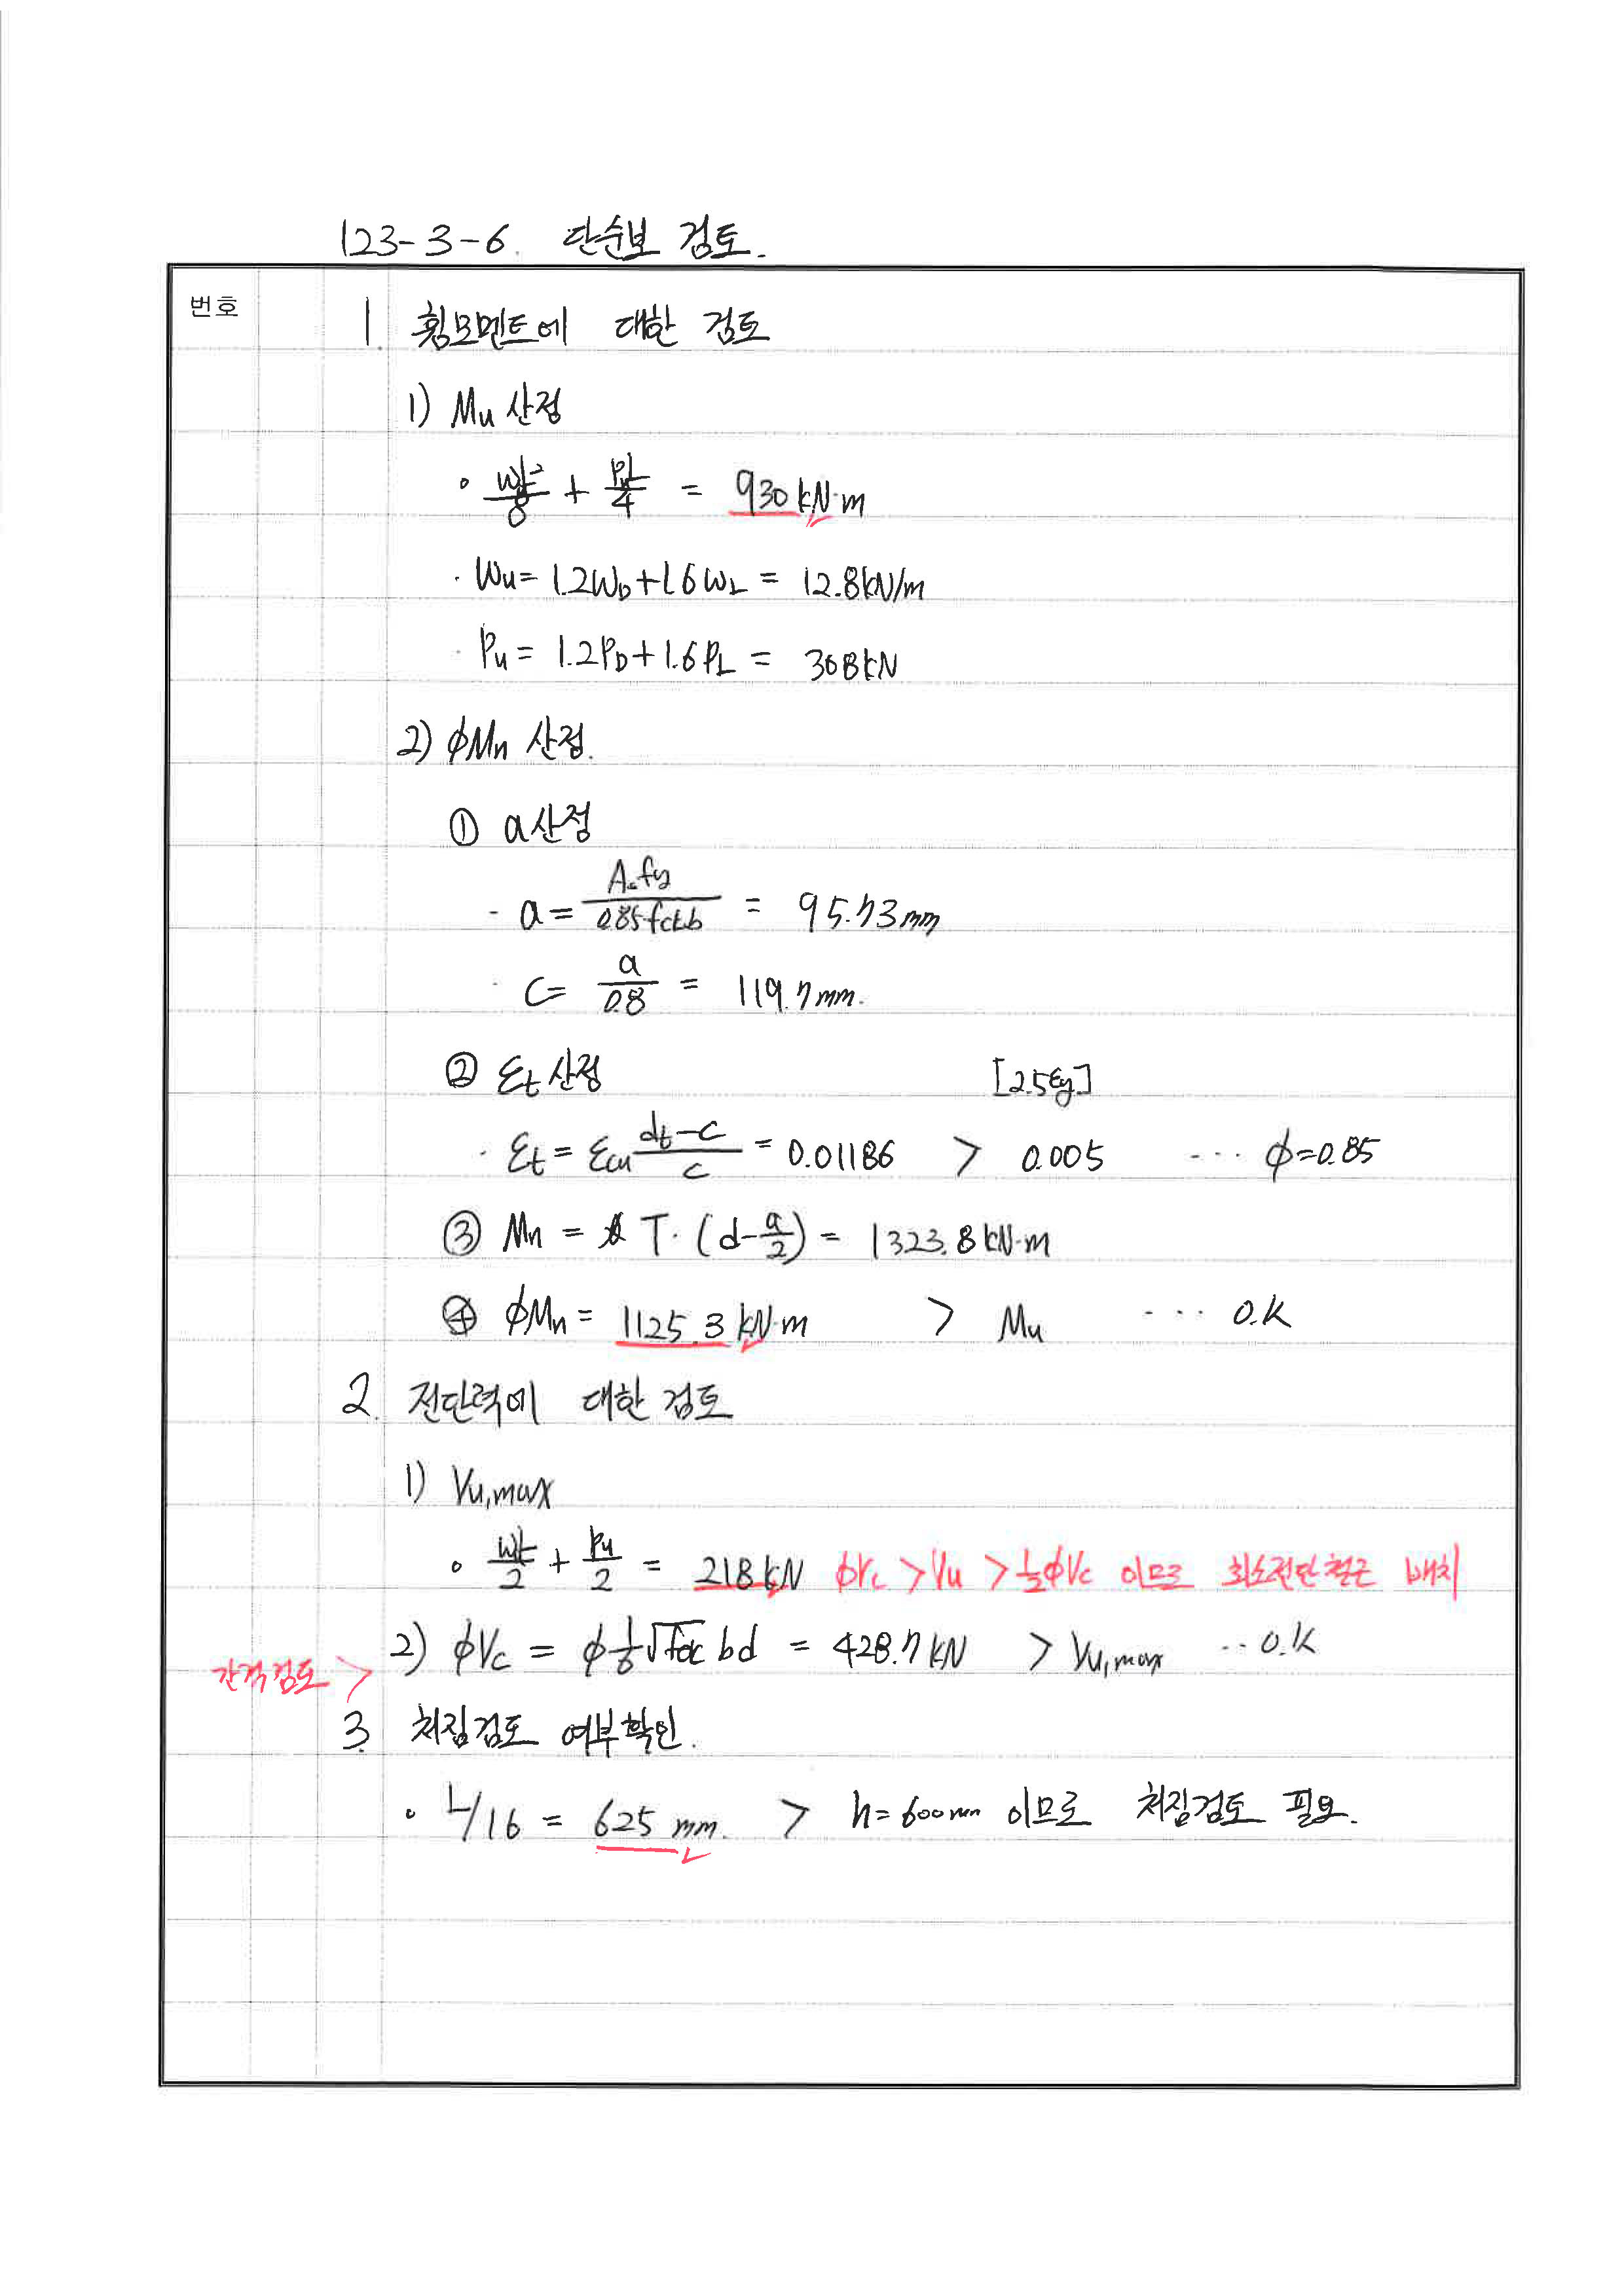 123-3-6. 단순보 검토.
번호
1. 휨모멘트에 대한 검토
1) Mu 산정
∘ wl²/8 + PuL/4 = 930 kN·m
· Wu = 1.2WD + 1.6WL = 12.8kN/m
· Pu = 1.2PD + 1.6PL = 308kN
2) φMn 산정.
① a산정
- a = As fy / 0.85fck b = 95.73mm
· c = a / 0.8 = 119.7mm.
② εt 산정 [2.5εy]
· εt = εcu (dt-c)/c = 0.01186 > 0.005 ··· φ=0.85
③ Mn = T·(d-a/2) = 1323.8kN·m
④ φMn = 1125.3 kN·m > Mu ··· O.K
2. 전단력에 대한 검토
1) Vu,max
∘ wL/2 + Pu/2 = 218kN φVc > Vu > ½φVc 이므로 최소전단철근 배치
2) φVc = φ 1/6 √fck bd = 428.7kN > Vu,max ··· O.K
간격검토 >
3. 처짐검토 여부확인.
∘ L/16 = 625 mm. > h=600mm 이므로 처짐검토 필요.